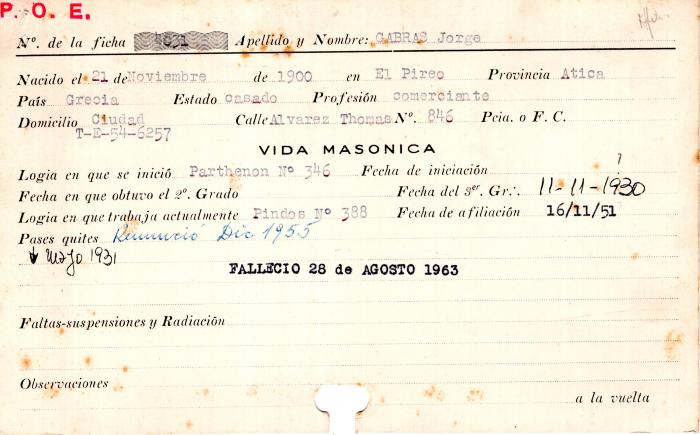 P. O. E.
Nº. de la ficha Apellido y Nombre: GABRAS Jorge
Nacido el 21 de Noviembre de 1900 en El Pireo Provincia Atica
País Grecia Estado casado Profesión comerciante
Domicilio Ciudad Calle Alvarez Thomas Nº. 846 Pcia. o F. C.
T-E-54-6257
VIDA MASONICA
Logia en que se inició Parthenon Nº 346 Fecha de iniciación ?
Fecha en que obtuvo el 2º. Grado Fecha del 3er. Gr∴ 11-11-1930
Logia en que trabaja actualmente Pindos Nº 388 Fecha de afiliación 16/11/51
Pases quites Renunció Dic. 1955
↓ Mayo 1931
FALLECIO 28 de AGOSTO 1963
Faltas-suspensiones y Radiación
Observaciones
a la vuelta